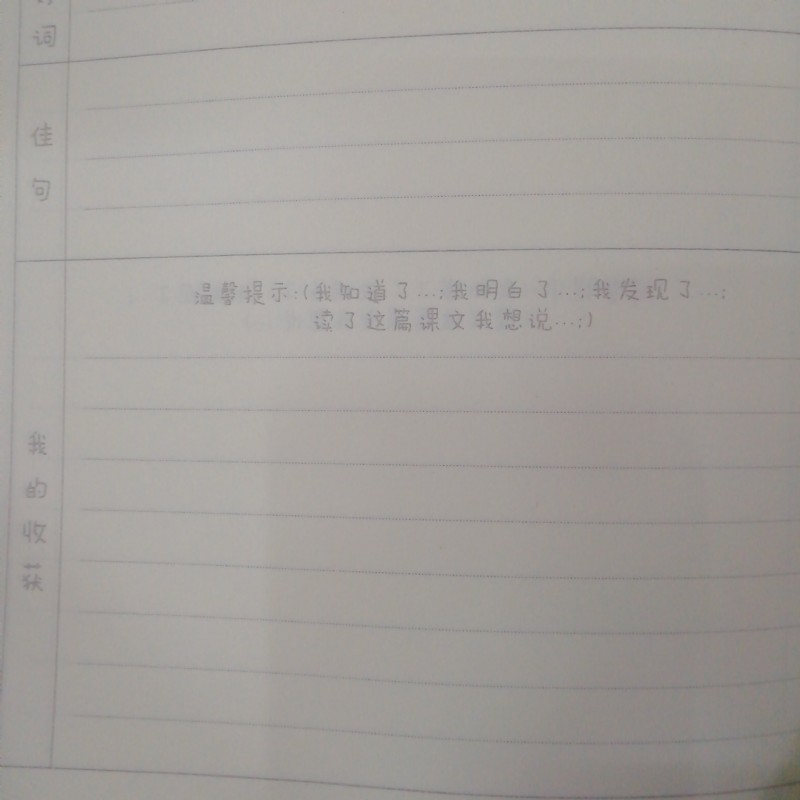 词
佳句
温馨提示:(我知道了...;我明白了...;我发现了...;
读了这篇课文我想说...;)
我的收获